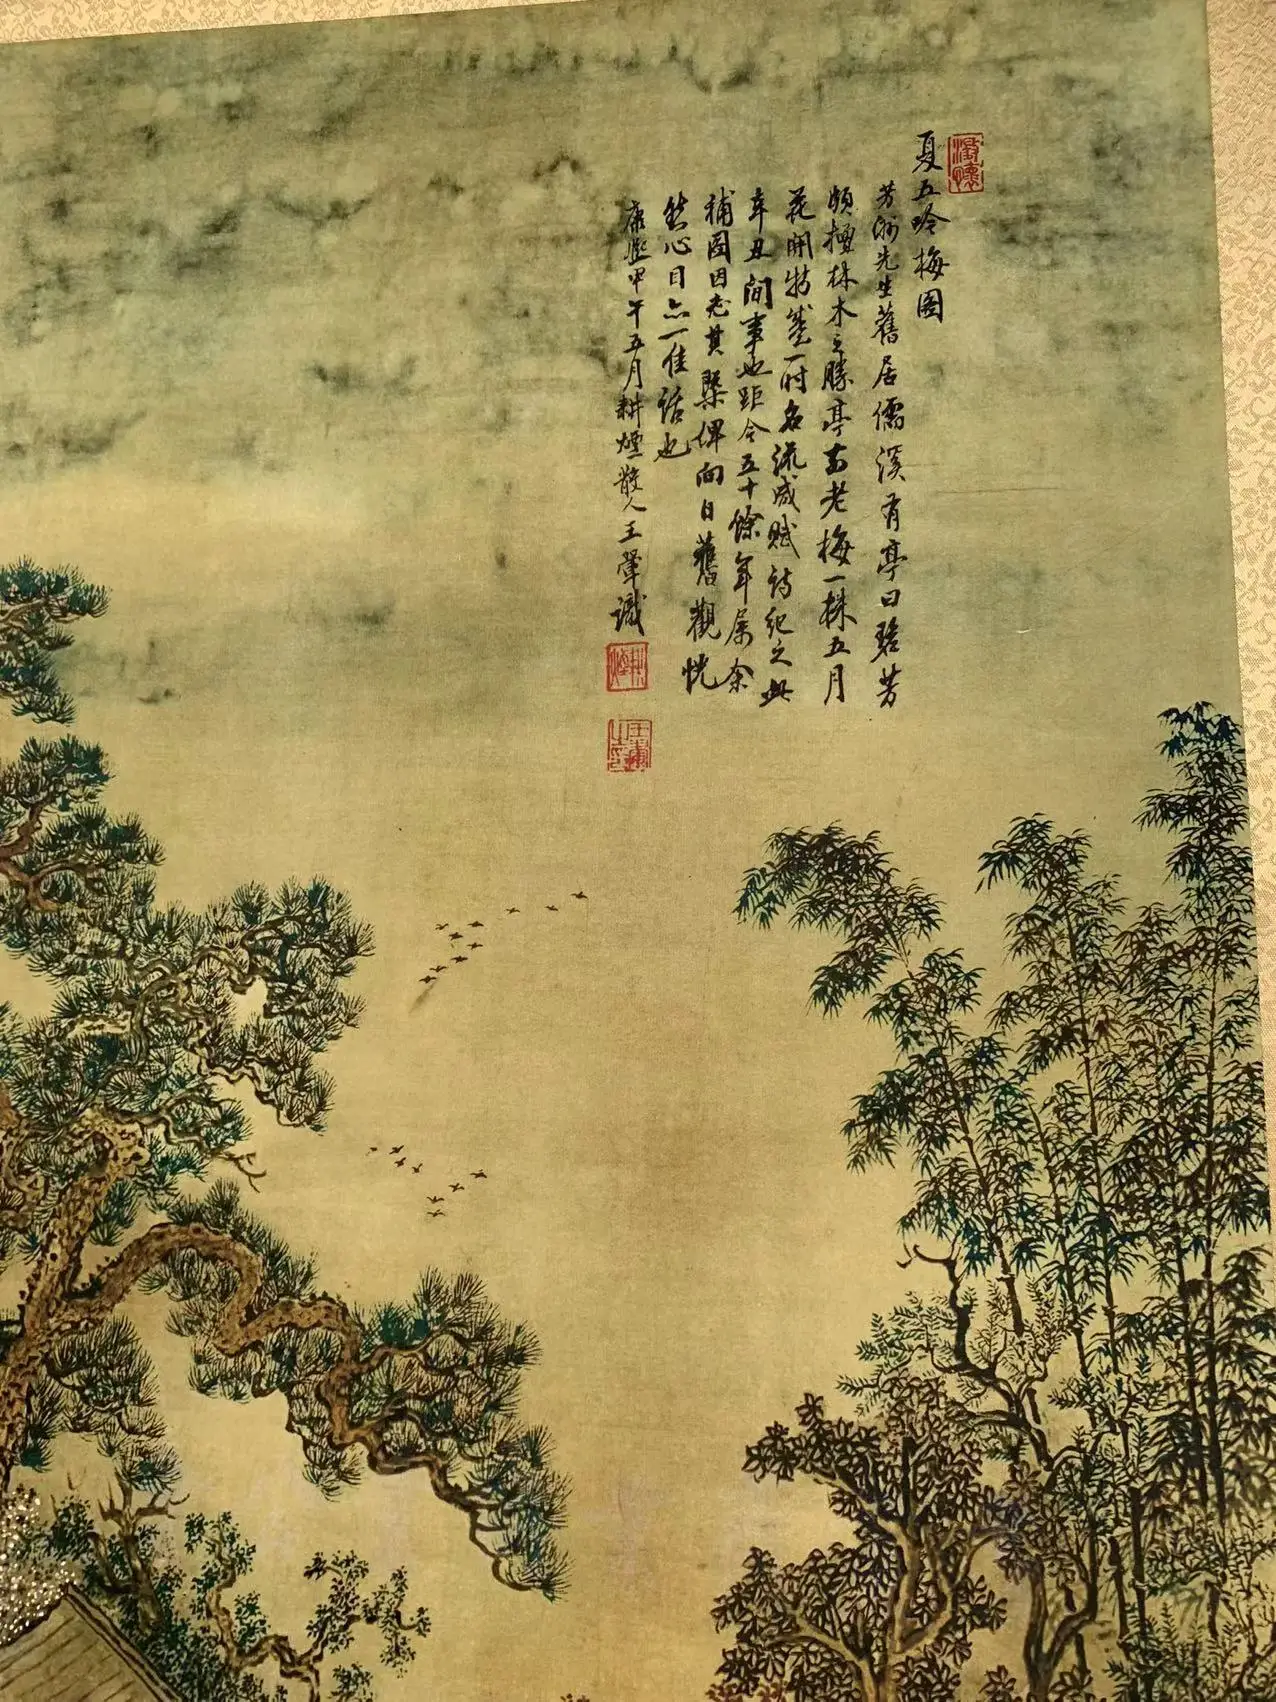 夏五吟梅圖
芳洲先生舊居儒溪有亭曰碧芳
頗擅林木之勝亭前老梅一株五月
花開特盛一時名流咸賦詩紀之此
辛丑間事也距今五十餘年屬余
補圖因志其槩俾向日舊觀恍
然心目亦一佳話也
康熙甲午五月耕煙散人王翬識
耕煙
王翬之印